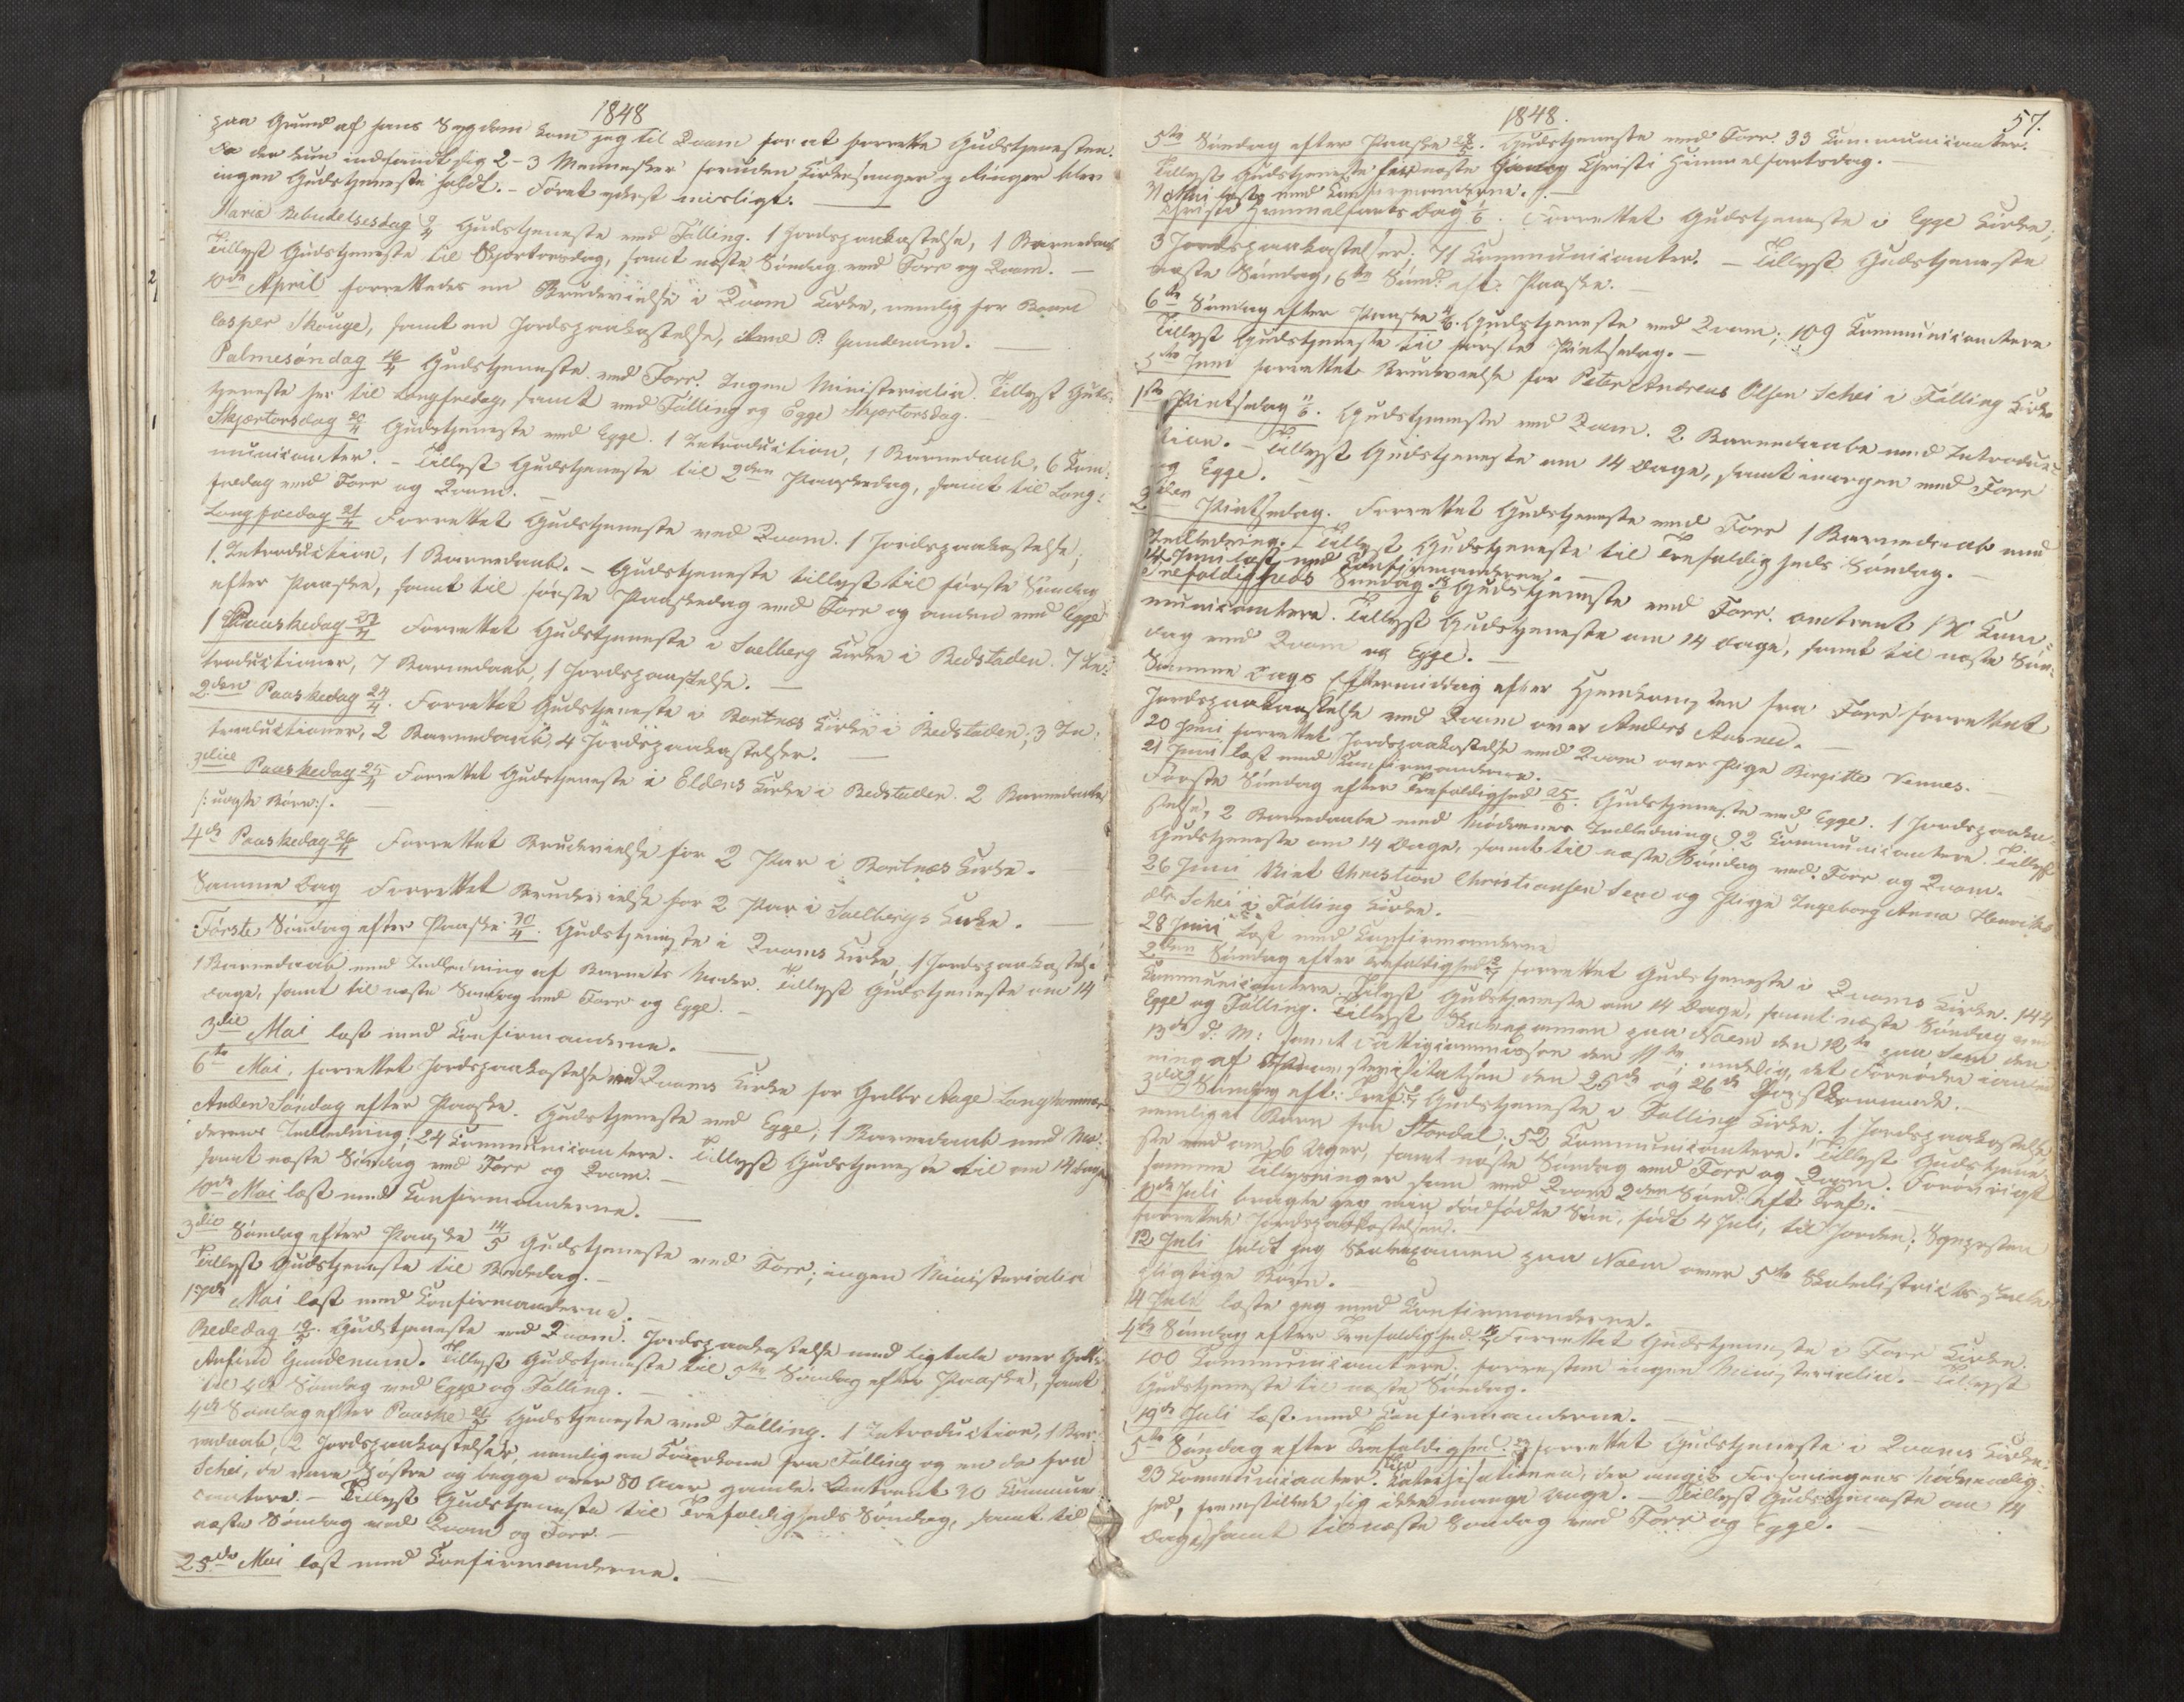 1848
paa Grund af hans Sygdom kom jeg til Qvam for at forrette Gudstjenesten.
Da der kun indfandt sig 2-3 Mennesker foruden Kirkesanger og Ringer blev
ingen Gudstjeneste holdt. - Føret yderst misligt. -
Mariæ Bebudelsesdag 9/4 Gudstjeneste ved Følling. 1 Jordspaakastelse, 1 Barnedaab
Tillyst Gudstjeneste til Skjærtorsdag, samt næste Søndag ved Forr og Qvam. -
10de April forrettedes en Brudevielse i Qvam Kirke, nemlig for
Casper Skouge, samt en Jordspaakastelse, P. Gundenum. -
Palmesøndag 16/4 Gudstjeneste ved Forr. Ingen Ministerialia. Tillyst Guds:
tjeneste her til Langfredag, samt ved Følling og Egge Skjærtorsdag.
Skjærtorsdag 20/4 Gudstjeneste ved Egge. 1 Introduction, 1 Barnedaab, 6 Com:
municanter. - Tillyst Gudstjeneste til 2den Paaskedag, samt til Lang:
fredag ved Forr og Qvam. -
Langfredag 21/4 Forrettet Gudstjeneste ved Qvam. 1 Jordspaakastelse;
1 Introduction, 1 Barnedaab. - Gudstjeneste tillyst til første Søndag
efter Paaske, samt til første Paaskedag ved Forr og anden ved Egge
1 Paaskedag 23/4 Forrettet Gudstjeneste i Saelberg Kirke i Bedstaden. 7 In:
troductioner, 7 Barnedaab, 1 Jordspaakastelse. -
2den Paaskedag 24/4. Forrettet Gudstjeneste i Bartnæs Kirke i Bedstaden; 3 In:
troductioner, 2 Barnedaab 4 Jordspaakastelser. -
3die Paaskedag 25/4 Forrettet Gudstjeneste i Eldens Kirke i Bedstaden. 2 Barnedaabe
/: uægte Børn :/. -
4de Paaskedag 26/4 Forrettet Brudevielse for 2 Par i Bartnæs Kirke. -
Samme Dag Forrettet Brudevielse for 2 Par i Saelbergs Kirke. -
Første Søndag efter Paaske 30/4. Gudstjeneste i Qvams Kirke, 1 Jordspaakastelse
1 Barnedaab med Indledning af Barnets Moder. Tillyst Gudstjeneste om 14
dage, samt til næste Søndag ved Forr og Egge. -
3die Mai læst med Confirmanderne. -
6te Mai, forrettet Jordspaakastelse ved Qvams Kirke for Aage Langhammer
Anden Søndag efter Paaske. Gudstjeneste ved Egge; 1 Barnedaab med Mo:
derens Indledning; 24 Communicantere. Tillyst Gudstjeneste til om 14 dage
samt næste Søndag ved Forr og Qvam. -
10de Mai læst med Confirmanderne. -
3die Søndag efter Paaske 14/5 Gudstjeneste ved Forr; ingen Ministerialia
Tillyst Gudstjeneste til Bededag. -
17de Mai læst med Confirmanderne. -
Bededag 19/5. Gudstjeneste ved Qvam. Jordspaakastelse med Ligtale over
Gundenum. Tillyst Gudstjeneste til 5te Søndag efter Paaske, samt
til 4de Søndag ved Egge og Følling. -
4de Søndag efter Paaske 21/5 Gudstjeneste ved Følling. 1 Introduction, 1 Bar:
nedaab, 2 Jordspaakastelser, nemlig en fra Følling og en do fra
Schei, de vare Søstre og begge over 80 Aar gamle. Omtrent 30 Commun:
cantere. - Tillyst Gudstjeneste til Trefoldigheds Søndag, samt til
næste Søndag ved Qvam og Forr. -
25de Mai læst med Confirmanderne. -
1848. 57.
5te Søndag efter Paaske 28/5. Gudstjeneste ved Forr. 33 Communicanter.
Tillyst Gudstjeneste næste Christi Himmelfartsdag. -
31 Mai læste med Confirmanderne. -
Christi Himmelfarts Dag 1/6. Forrettet Gudstjeneste i Egge Kirke;
3 Jordspaakastelser; 71 Communicanter. - Tillyst Gudstjeneste
næste Søndag, 6te Sønd: eft: Paaske. -
6te Søndag efter Paaske 4/6. Gudstjeneste ved Qvam; 109 Communicantere
Tillyst Gudstjeneste til første Pintsedag. -
5te Juni forrettet Brudevielse for Peter Andreas Olsen Schei i Følling Kirke
1ste Pintsedag 11/6. Gudstjeneste ved Qvam. 2 Barnedaabe med Introduc:
tion. - Tillyst Gudstjeneste om 14 Dage, samt imorgen ved Forr
og Egge. -
2den Pintsedag. Forrettet Gudstjeneste ved Forr 1 Barnedaab med
Indledning. - Tillyst Gudstjeneste til Trefoldigheds Søndag. -
14 Juni læst med Confirmanderne. -
Trefoldigheds Søndag 18/6 Gudstjeneste ved Forr. omtrent Com:
municantere. Tillyst Gudstjeneste om 14 dage, samt til næste Søn:
dag ved Qvam og Egge. -
Samme Dags Eftermiddag efter Hjemkomsten fra Forr forrettet
Jordspaakastelse ved Qvam over Anders Aasved. -
20 Juni forrettet Jordspaakastelse ved Qvam over Pige Birgitte Vennes. -
21 Juni læst med Confirmanderne. -
Første Søndag efter Trefoldighed 25/6. Gudstjeneste ved Egge. 1 Jordspaaka:
stelse, 2 Barnedaabe med Mødrenes Indledning; 92 Communicantere. Tillyst
Gudstjeneste om 14 Dage, samt til næste Søndag ved Forr og Qvam.
26 Juni Viet Christian Christiansen Sem og Pige Ingeborg Anna Henriks:
dtr Schei i Følling Kirke.
28 Juni læst med Confirmanderne
2den Søndag efter Trefoldighed 2/7 forrettet Gudstjeneste i Qvams Kirke. 144
Communicantere. Tillyst Gudstjeneste om 14 Dage, samt næste Søndag ved
Egge og Følling. Tillyst Skoleexamen paa Naem den 12te paa Sem den
13de d: M: samt Fattigcommission den 17te; endelig, det Fornødne i anled
ning af den 25de og 26de førstkommende. -
3die Søndag eft: Tref: 9/7 Gudstjeneste i Følling Kirke. 1 Jordspaakastelse,
nemlig et Barn fra Stordal; 52 Communicantere. Tillyst Gudstjene:
ste ved om 6 Uger, samt næste Søndag ved Forr og Qvam. Forøvrigt
samme Tillysninger som ved Qvam 2den Sønd: eft Tref: -
10de Juli bragte jeg min dødfødte Søn, født 4 Juli, til Jorden; Sognepræsten
forrettede Jordspaakastelsen. -
12 Juli holdt jeg Skoleexamen paa Naem over 5te Skoledistricts skole
pligtige Børn. -
14 Juli læste jeg med Confirmanderne. -
4de Søndag efter Trefoldighed 16/7 Forrettet Gudstjeneste i Forr Kirke.
100 Communicantere. forresten ingen Ministerialia. - Tillyst
Gudstjeneste til næste Søndag.
19de Juli læst med Confirmanderne. -
5te Søndag efter Trefoldighed 23/7 forrettet Gudstjeneste i Qvams Kirke:
23 Communicanter. Til Catechisationen, der angik Forsoningens Nødvendig:
hed, fremstillede sig ikke mange Unge. - Tillyst Gudstjeneste om 14
Dage, samt til næste Søndag ved Forr og Egge. -